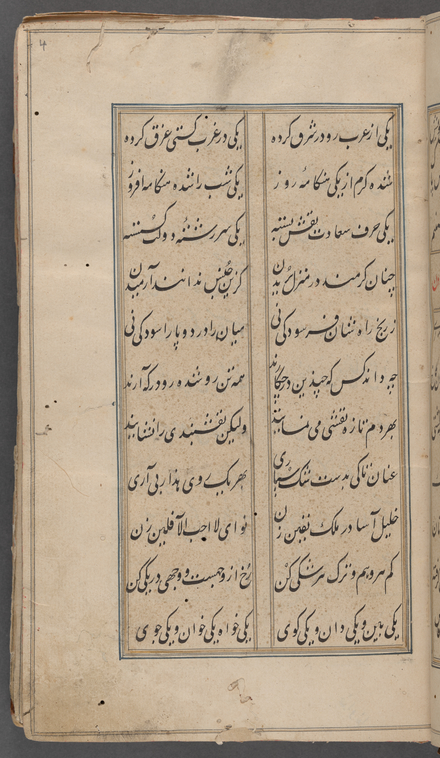 ۴
یکی از غرب رو در شرق کرده یکی در غرب کشتی غرق کرده
شده گرم از یکی هنگامه روز یکی شب را شده هنگامه افروز
یکی حرف سعادت نقش بسته یکی سررشته دولت گسسته
چنان گرمند در منزل بریدن کزین جنبش ندانند آرمیدن
ز رنج راه نشان فرسودگی نی میان را درد و پا را سودگی نی
چه داند کس که چندین در چکارند همه تن رو شده رو در که آرند
بهر دم تازه نقشی می نمایند ولیکن نقشبندی را نشایند
عنان تاکی بدست شک سپاری بهر یک روی هذا ربی آری
خلیل آسا در ملک یقین زن نوای لا احب الآفلین زن
کم هر وهم و ترک هر شکی کن رخ از وجهت وجهی در یکی کن
یکی بین و یکی دان و یکی کوی یکی خواه یکی خوان و یکی جوی